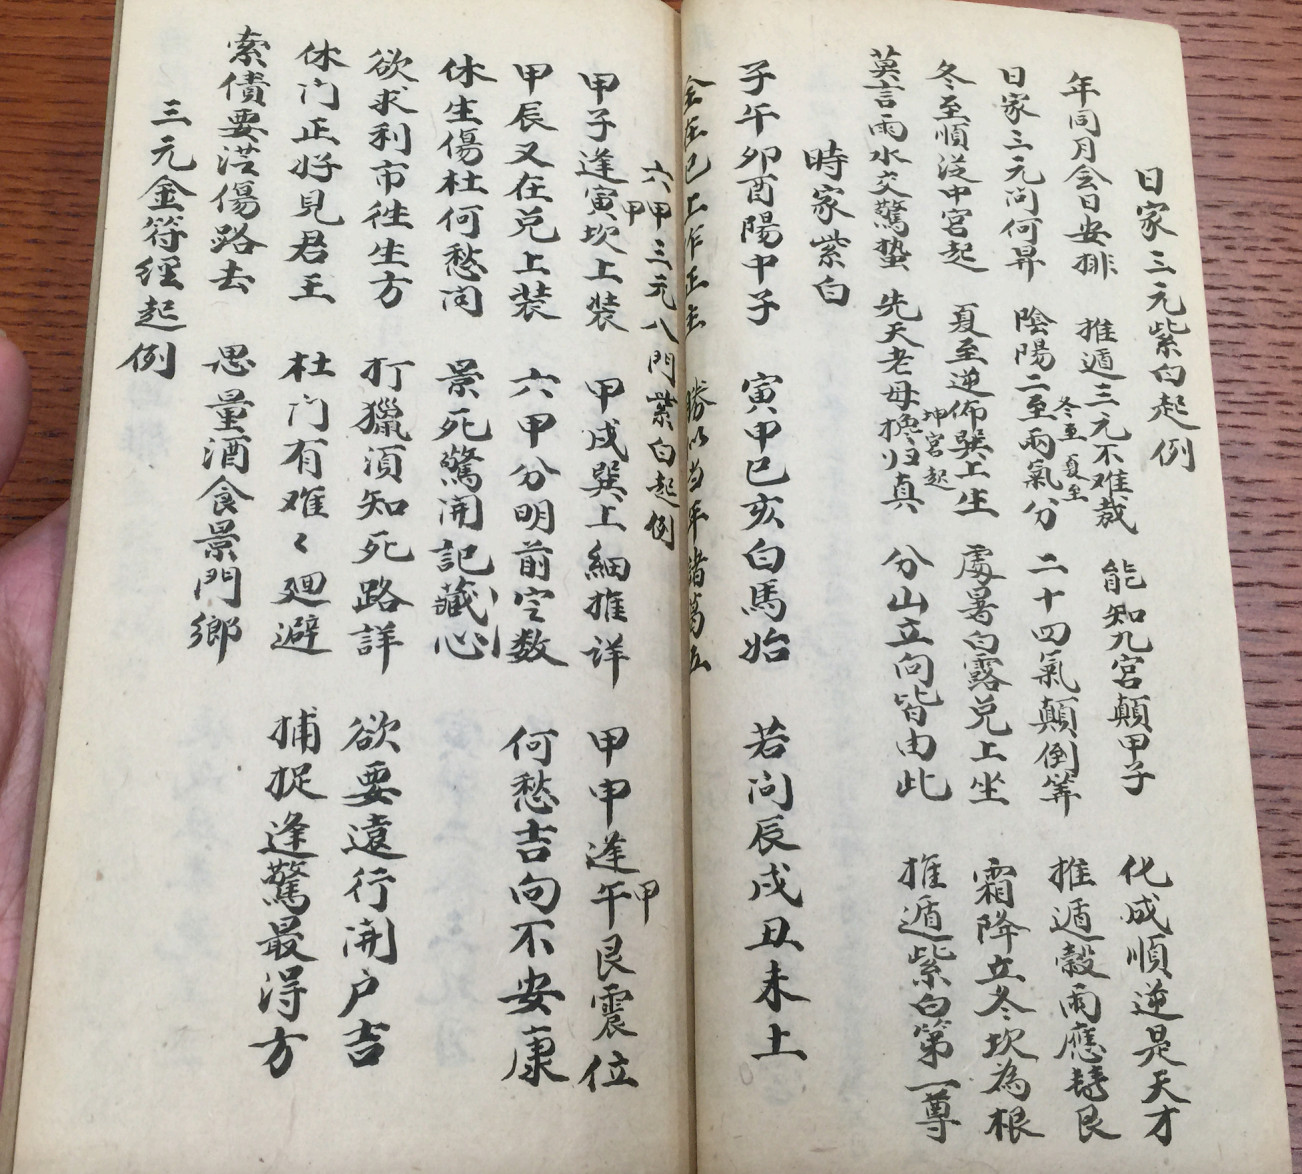 日家三元紫白起例
年同月令日安排 推遁三元不难裁 能知九宮顛甲子 化成順逆是天才
冬至 夏至
日家三元问何昇 陰陽二至兩氣分 二十四氣顛倒筭 推遁穀雨應轉艮
冬至順从中宮起 夏至逆佈巽上坐 處暑白露兑上坐 霜降立冬坎為根
坤宮起
莫言雨水交驚蟄 先天老母换归真 分山立向皆由此 推遁紫白第一尊
時家紫白
子午卯酉陽中子 寅甲巳亥白馬始 若问辰戌丑未上
在巳上作正主 勝以当年諸葛五
六甲三元八門紫白起例
甲子逢寅坎上装 甲戌巽上細推详 甲申逢午艮震位
甲
甲
甲辰又在兑上装 六甲分明前定数 何愁吉向不安康
休生傷杜何愁闷 景死驚闲記藏心
欲求利市徃生方 打獵須知死路詳 欲要遠行闲户吉
休门正好見君王 杜门有难々廻避 捕捉逢驚最得方
索債要从傷路去 思量酒食景門鄉
三元金符經起例